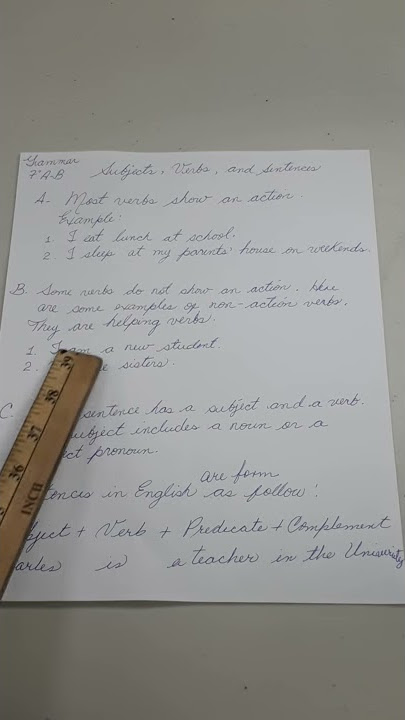 Grammar
7° A-B
Subjects, Verbs, and Sentences
A- Most verbs show an action.
Example:
1. I eat lunch at school.
2. I sleep at my parents' house on weekends.
B. Some verbs do not show an action. Here
are some examples of non-action verbs.
They are helping verbs.
1. I am a new student.
2. sisters.
C. sentence has a subject and a verb.
subject includes a noun or a
pronoun.
are form
in English as follow:
+ Verb + Predicate + Complement
is a teacher in the University
39
38
37
36
INCH